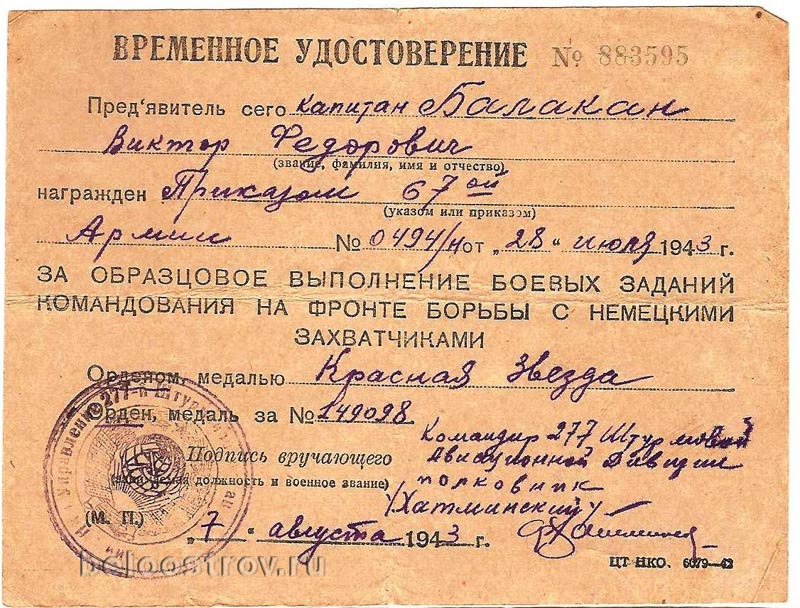 ВРЕМЕННОЕ УДОСТОВЕРЕНИЕ № 883595
Пред'явитель сего капитан Балакан
Виктор Федорович
(звание, фамилия, имя и отчество)
награжден Приказом 67 ой
(указом или приказом)
Армии № 0494/н от „28“ июля 1943 г.
ЗА ОБРАЗЦОВОЕ ВЫПОЛНЕНИЕ БОЕВЫХ ЗАДАНИЙ
КОМАНДОВАНИЯ НА ФРОНТЕ БОРЬБЫ С НЕМЕЦКИМИ
ЗАХВАТЧИКАМИ
Орденом, медалью Красная Звезда
Орден, медаль за № 149098
Командир 277 Штурмовой
Подпись вручающего Авиационной Дивизии
должность и военное звание) полковник
/Хатминский/
(М. П.)
„7“ августа 1943 г.
ЦТ НКО. 6079—42
Управление 277-й
beloostrov.ru